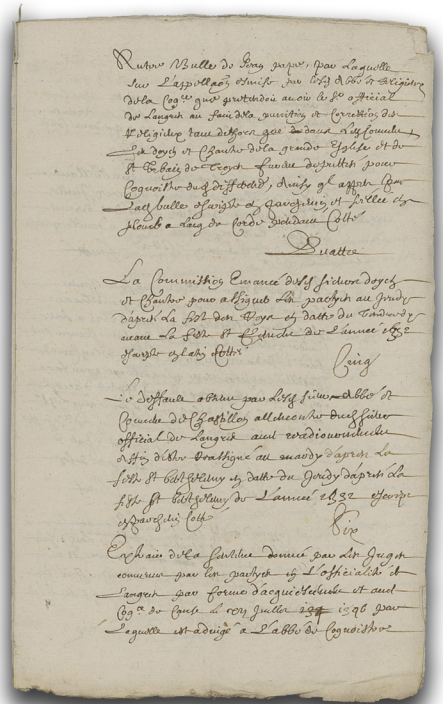 Autre Bulle de Jean pape, par Laquelle
sur L'appellaon emise par lesd Abbé et Religieux
de la cogce que pretendoit avoir le Sr official
de Langres au faict de la punition et correction des
Religieux tant dehors que dans Led Convent
Les doyen et Chantre de la grande Eglise et de
St Urbain de Troyes furent deputtez pour
cognoistre dud differend, Ainsy ql appert par
Lad bulle escripte en parchemin et scellee en
plomb a Lacq de corde pendant Cotté
Quattre
La Commission Emanée desd sieurs doyen
et Chantre pour assigner Les partyes au Jeudy
d'apres La feste des Roys en datte du Vendredy
avant La feste St
escripte en latin Cottée
Cinq
Le deffault obtenu par Lesd sieurs Abbé et
Convent de Chastillon allencontre dud sieur
official de Langres avec
affin d'estre reassigné au mardy d'apres La
feste St Barthelemy en datte du Jeudy d'apres La
feste St Barthelemy de L'année 1332 escript
en parchemin Cotté
Six
Extraict de la Sentence donnee par Les Juges
convenus par les partyes en L'officialité de
Langres par forme d'acquiescement et aud
Juillet 1396 par
Laquelle est adjugé a L'abbé de Cognoistre